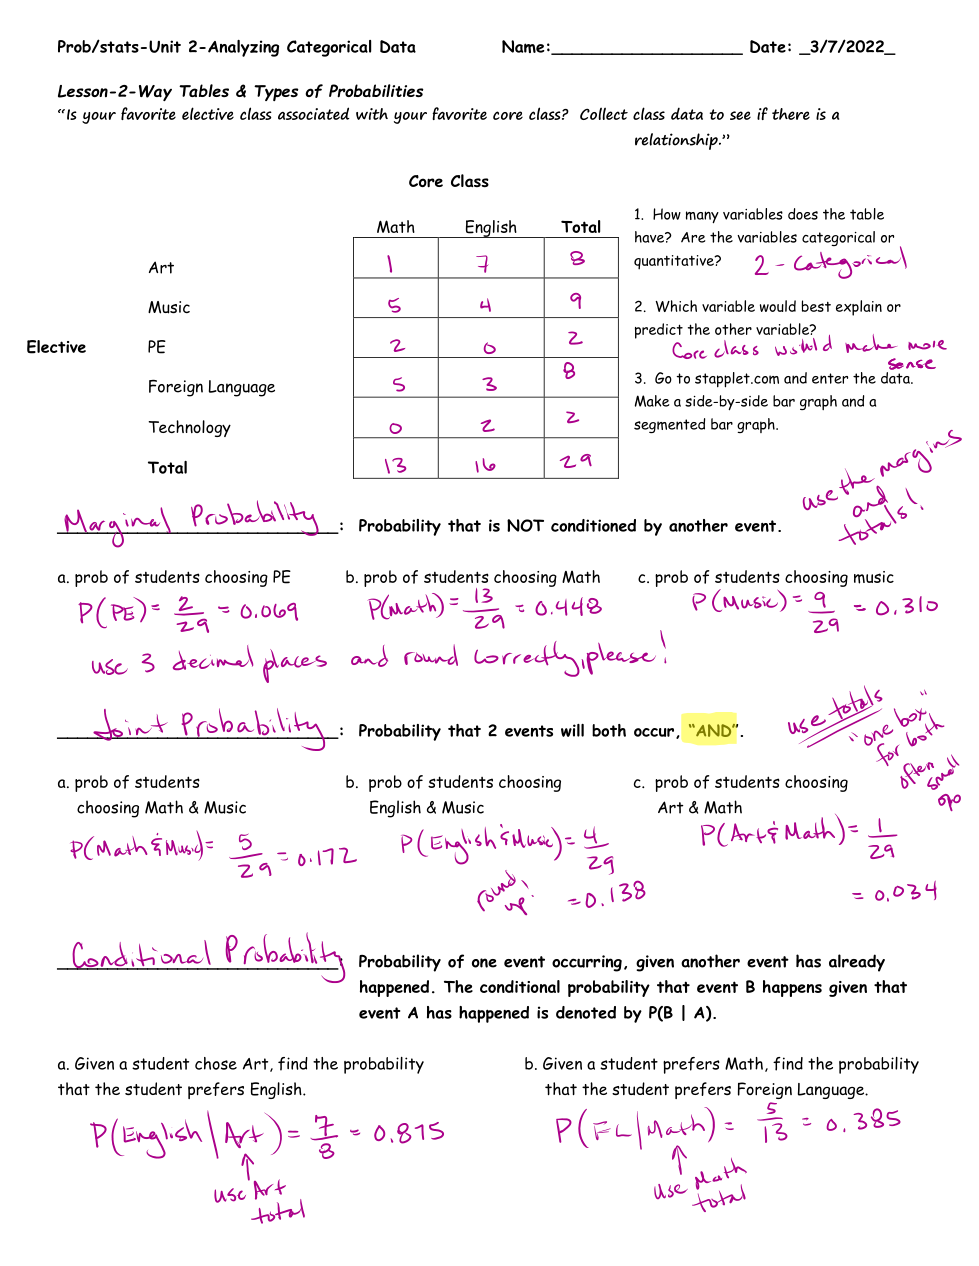 Prob/stats-Unit 2-Analyzing Categorical Data Name:____________________ Date: _3/7/2022_
Lesson-2-Way Tables & Types of Probabilities
“Is your favorite elective class associated with your favorite core class? Collect class data to see if there is a
relationship.”
Core Class
Math English Total
Art 1 7 8
Music 5 4 9
Elective PE 2 0 2
Foreign Language 5 3 8
Technology 0 2 2
Total 13 16 29
1. How many variables does the table
have? Are the variables categorical or
quantitative? 2 - Categorical
2. Which variable would best explain or
predict the other variable?
Core class would make more
sense
3. Go to stapplet.com and enter the data.
Make a side-by-side bar graph and a
segmented bar graph.
use the margins
and
totals!
Marginal Probability: Probability that is NOT conditioned by another event.
a. prob of students choosing PE b. prob of students choosing Math c. prob of students choosing music
P(PE) = 2/29 = 0.069 P(Math) = 13/29 = 0.448 P(Music) = 9/29 = 0.310
use 3 decimal places and round correctly, please!
Joint Probability: Probability that 2 events will both occur, “AND”.
use totals
"one box"
for both
often
small
a. prob of students b. prob of students choosing c. prob of students choosing
choosing Math & Music English & Music Art & Math
P(Math & Music) = 5/29 = 0.172 P(English & Music) = 4/29 P(Art & Math) = 1/29
round up. = 0.138 = 0.034
Conditional Probability Probability of one event occurring, given another event has already
happened. The conditional probability that event B happens given that
event A has happened is denoted by P(B | A).
a. Given a student chose Art, find the probability b. Given a student prefers Math, find the probability
that the student prefers English. that the student prefers Foreign Language.
P(English | Art) = 7/8 = 0.875 P(FL | Math) = 5/13 = 0.385
↑ ↑
use Art use Math
total total